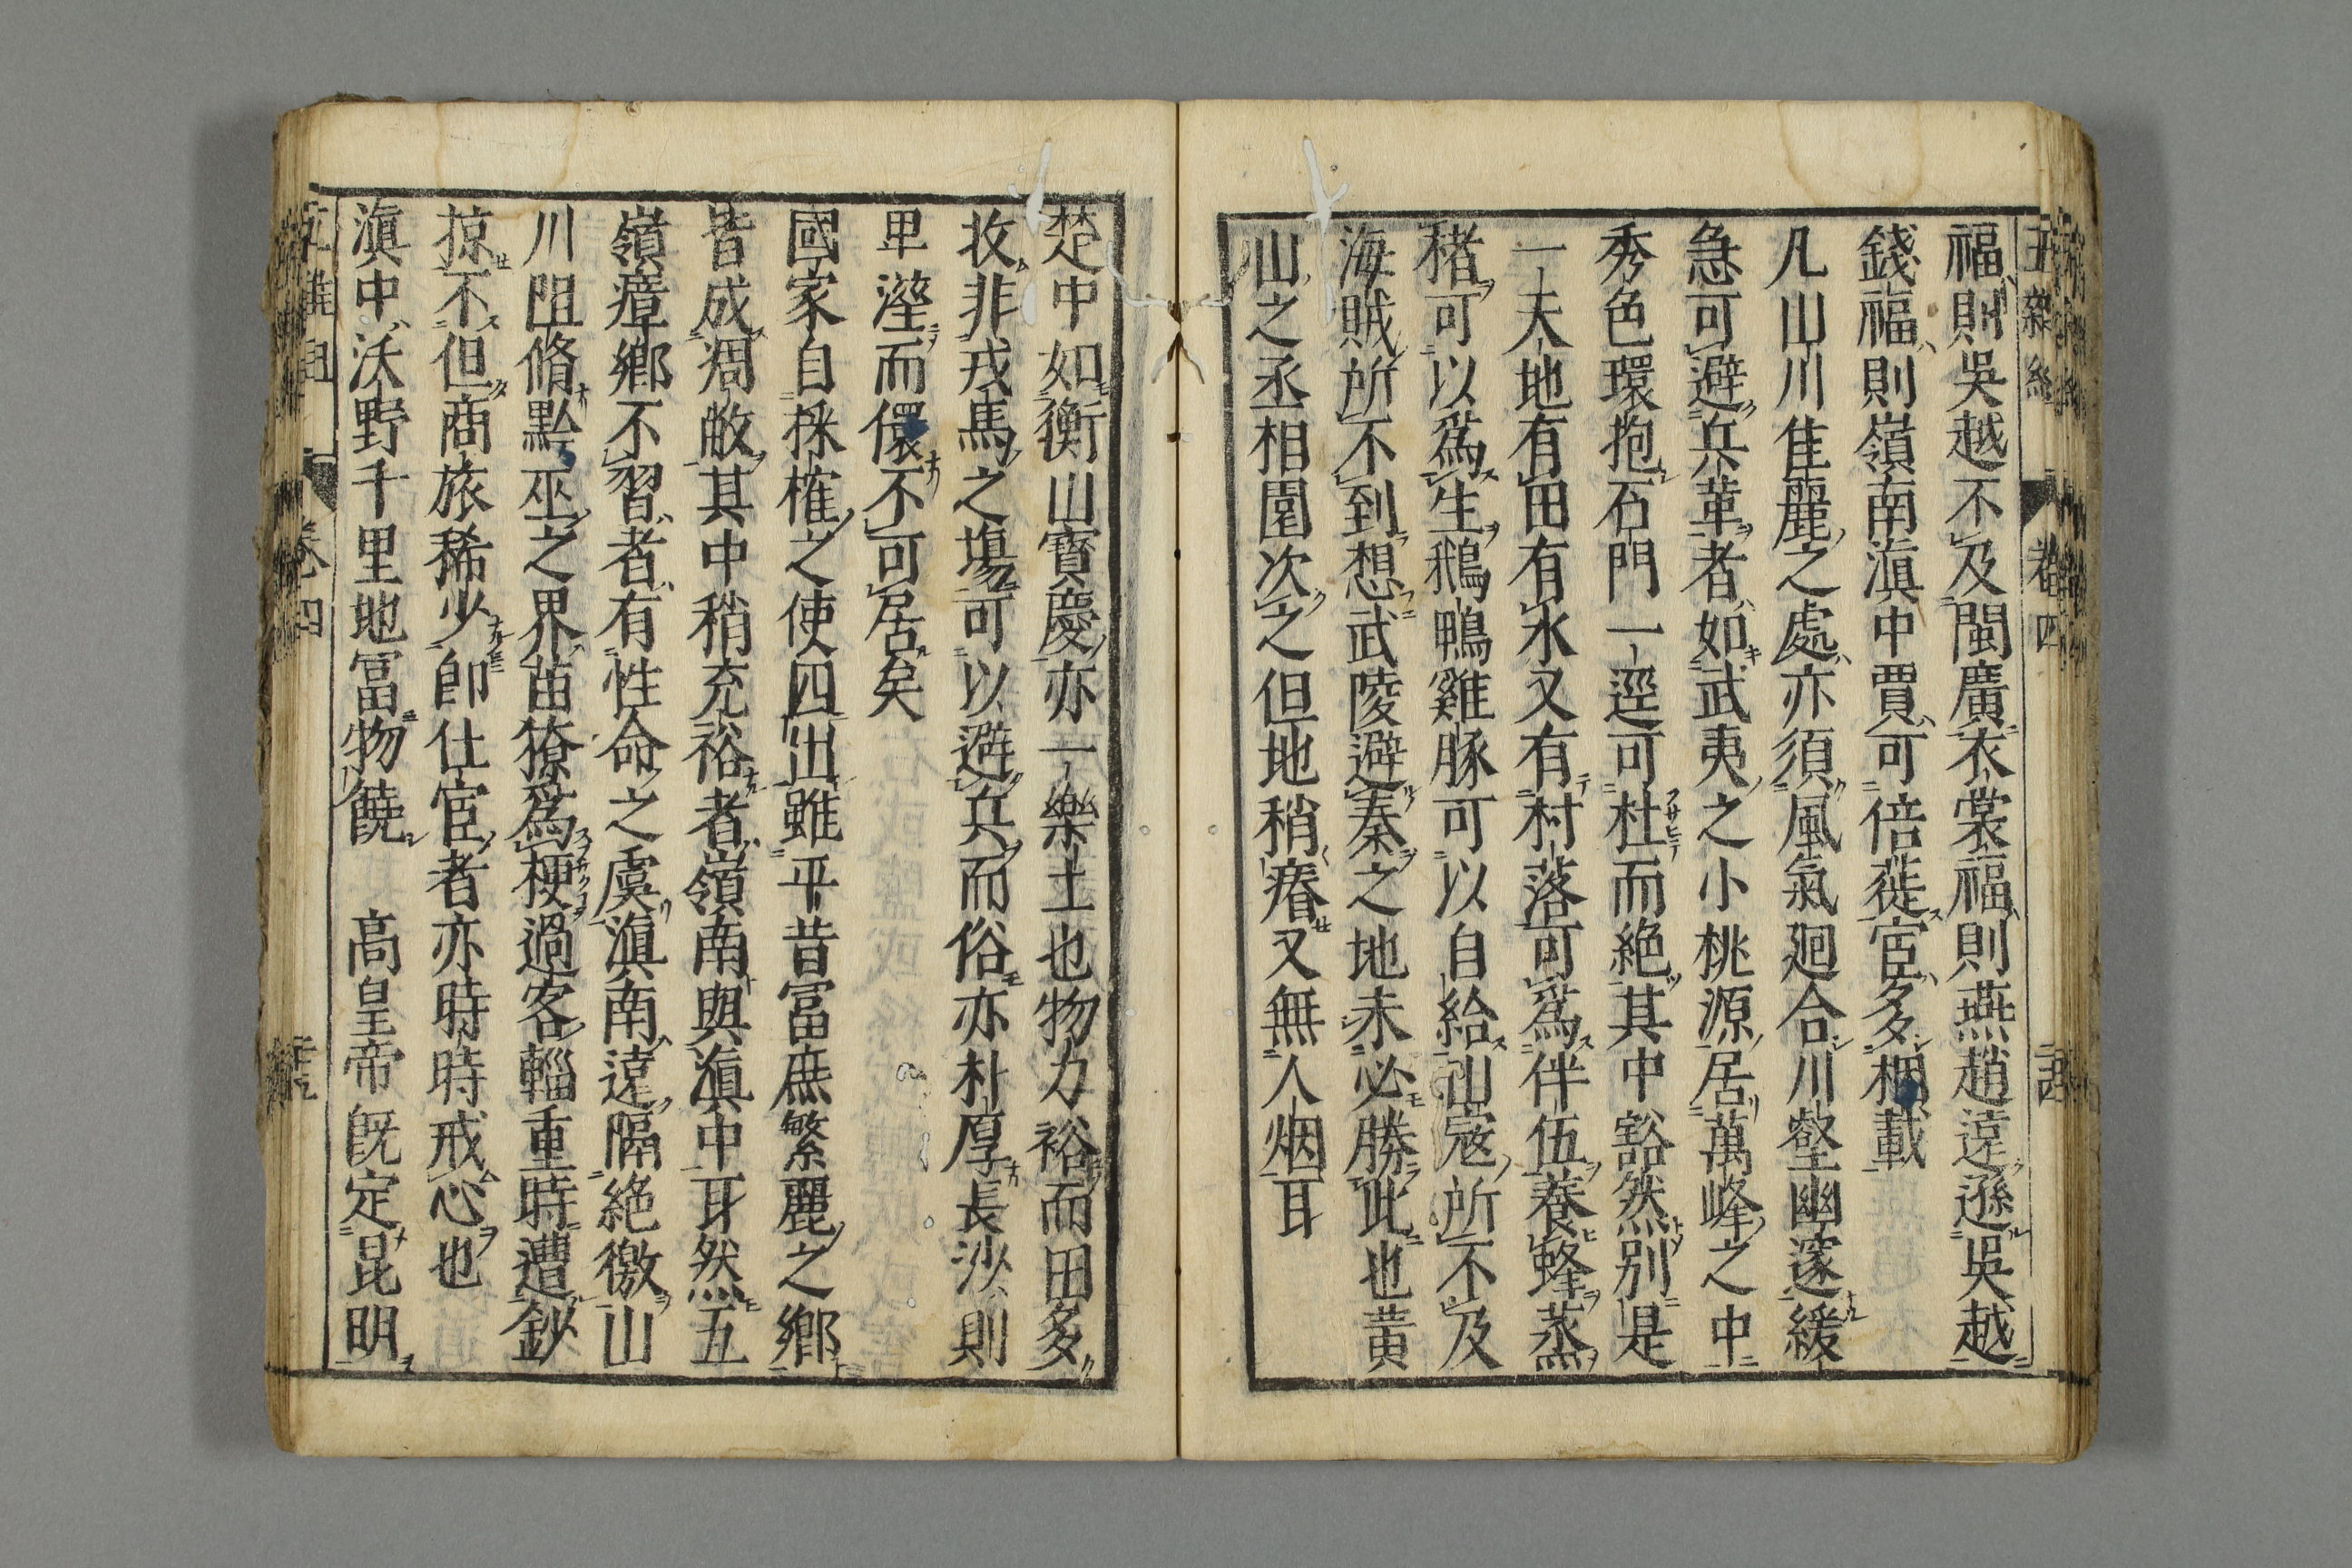 福則吳越不及閩廣衣裳福則燕趙遠遜吳越
錢福則嶺南滇中賈可倍蓰宦多稇載
凡山川佳麗之處亦須風氣廻合川壑幽邃緩
急可避兵革者如武夷之小桃源居萬峰之中
秀色環抱石門一逕可杜而絕其中豁然別是
一天地有田有水又有村落可爲伴伍養蜂蒸
楮可以爲生鵝鴨雞豚可以自給山寇所不及
海賊所不到想武陵避秦之地未必勝此也黃
山之丞相園次之但地稍瘠又無人烟耳
楚中如衡山寶慶亦一樂土也物力裕而田多
收非戎馬之塲可以避兵而俗亦朴厚長沙則
卑溼而儇不可居矣
國家自採榷之使四出雖平昔富庶繁麗之鄉
皆成凋敝其中稍充裕者嶺南與滇中耳然五
嶺瘴鄉不習者有性命之虞滇南遠隔絕徼山
川阻脩黔巫之界苗獠爲梗過客輜重時遭鈔
掠不但商旅稀少卽仕宦者亦時時戒心也
滇中沃野千里地富物饒　高皇帝旣定昆明
五雜組
卷四